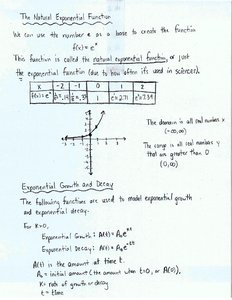 The Natural Exponential Function
We can use the number e as a base to create the function
f(x) = e^x
This function is called the natural exponential function, or just
the exponential function (due to how often its used in sciences).
x -2 -1 0 1 2
f(x)=e^x 1
The domain is all real numbers x
(-∞,∞)
The range is all real numbers y
that are greater than 0
(0,∞)
Exponential Growth and Decay
The following functions are used to model exponential growth
and exponential decay.
For K>0,
Exponential Growth: A(t) = A₀e^kt
Exponential Decay: A(t) = A₀e^-kt
A(t) is the amount at time t.
A₀ = initial amount (the amount when t=0, or A(0)),
K = rate of growth or decay
t = time